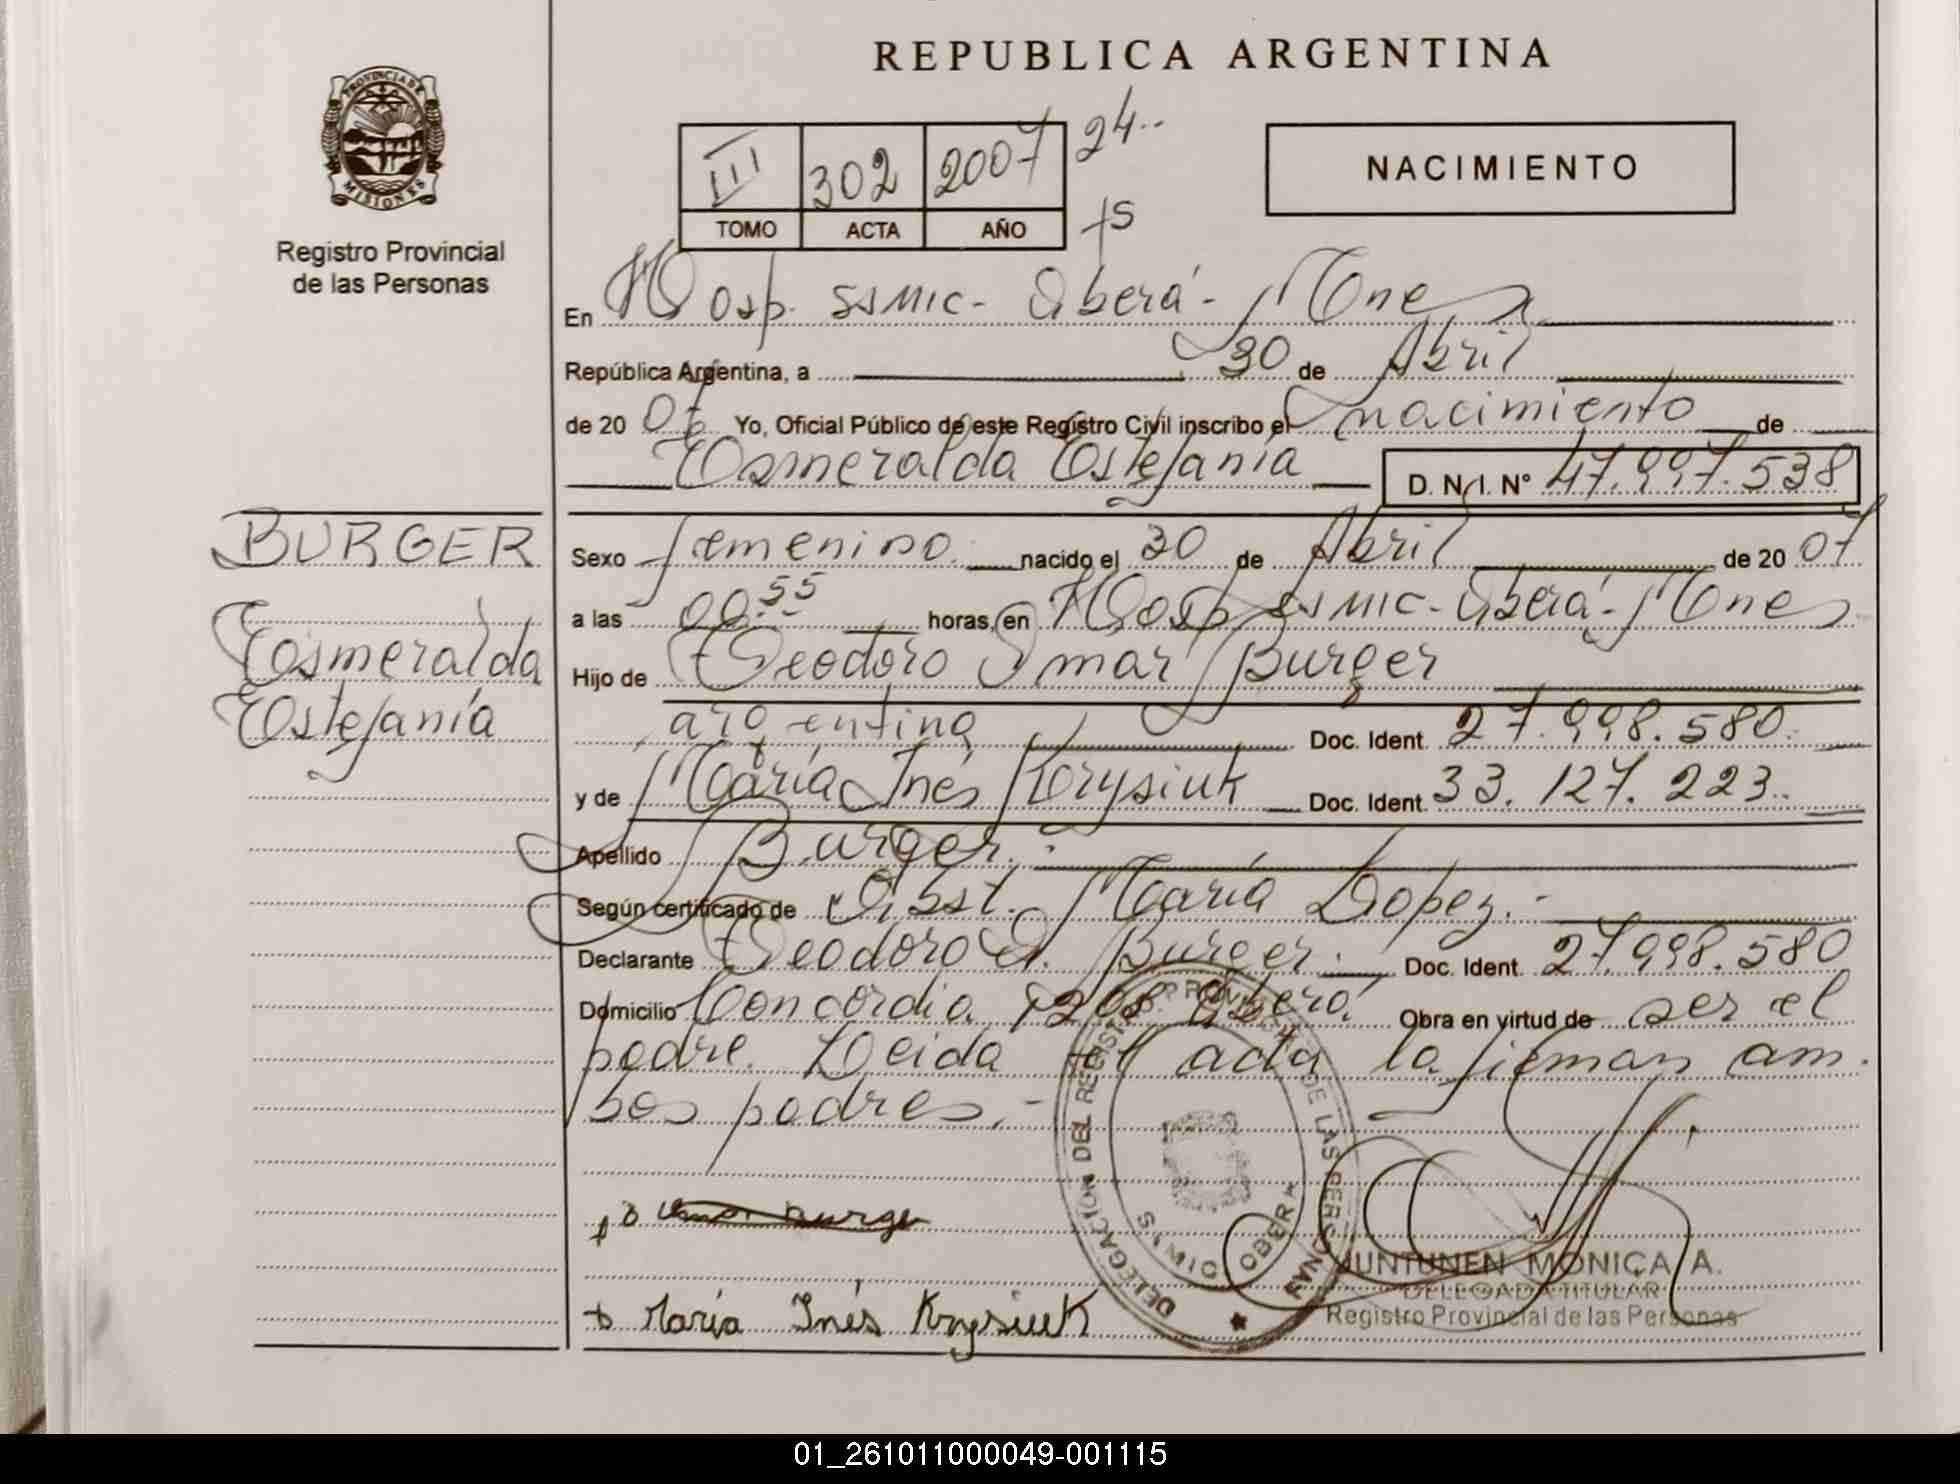 REPUBLICA ARGENTINA
PROVINCIA DE MISIONES
Registro Provincial
de las Personas
III 302 2007 24..
TOMO ACTA AÑO
NACIMIENTO
En Hosp. SSMIC - Oberá - Mnes
República Argentina, a 30 de Abril
de 2007 Yo, Oficial Público de este Registro Civil inscribo el nacimiento de
Esmeralda Estefanía D.N.I. N° 47.997.538
BURGER
Esmeralda
Estefanía
Sexo femenino. nacido el 30 de Abril de 2007
a las 00.55 horas, en Hosp. SSMIC - Oberá - Mnes
Hijo de Teodoro Omar Burger
argentina Doc. Ident. 27.998.580.
y de María Inés Krysiuk Doc. Ident. 33.127.223.
Apellido Burger.
Según certificado de Obst. María Lopez.-
Declarante Teodoro O. Burger. Doc. Ident. 27.998.580
Domicilio Concordia 1208 Oberá Obra en virtud de ser el
padre. Leida el acta la firman am.
bos padres.-
DELEGACION DEL REGISTRO PROVINCIAL DE LAS PERSONAS
OBERA
+ María Inés Krysiuk
JUNTUNEN MONICA A.
DELEGADA TITULAR
Registro Provincial de las Personas
01_261011000049-001115